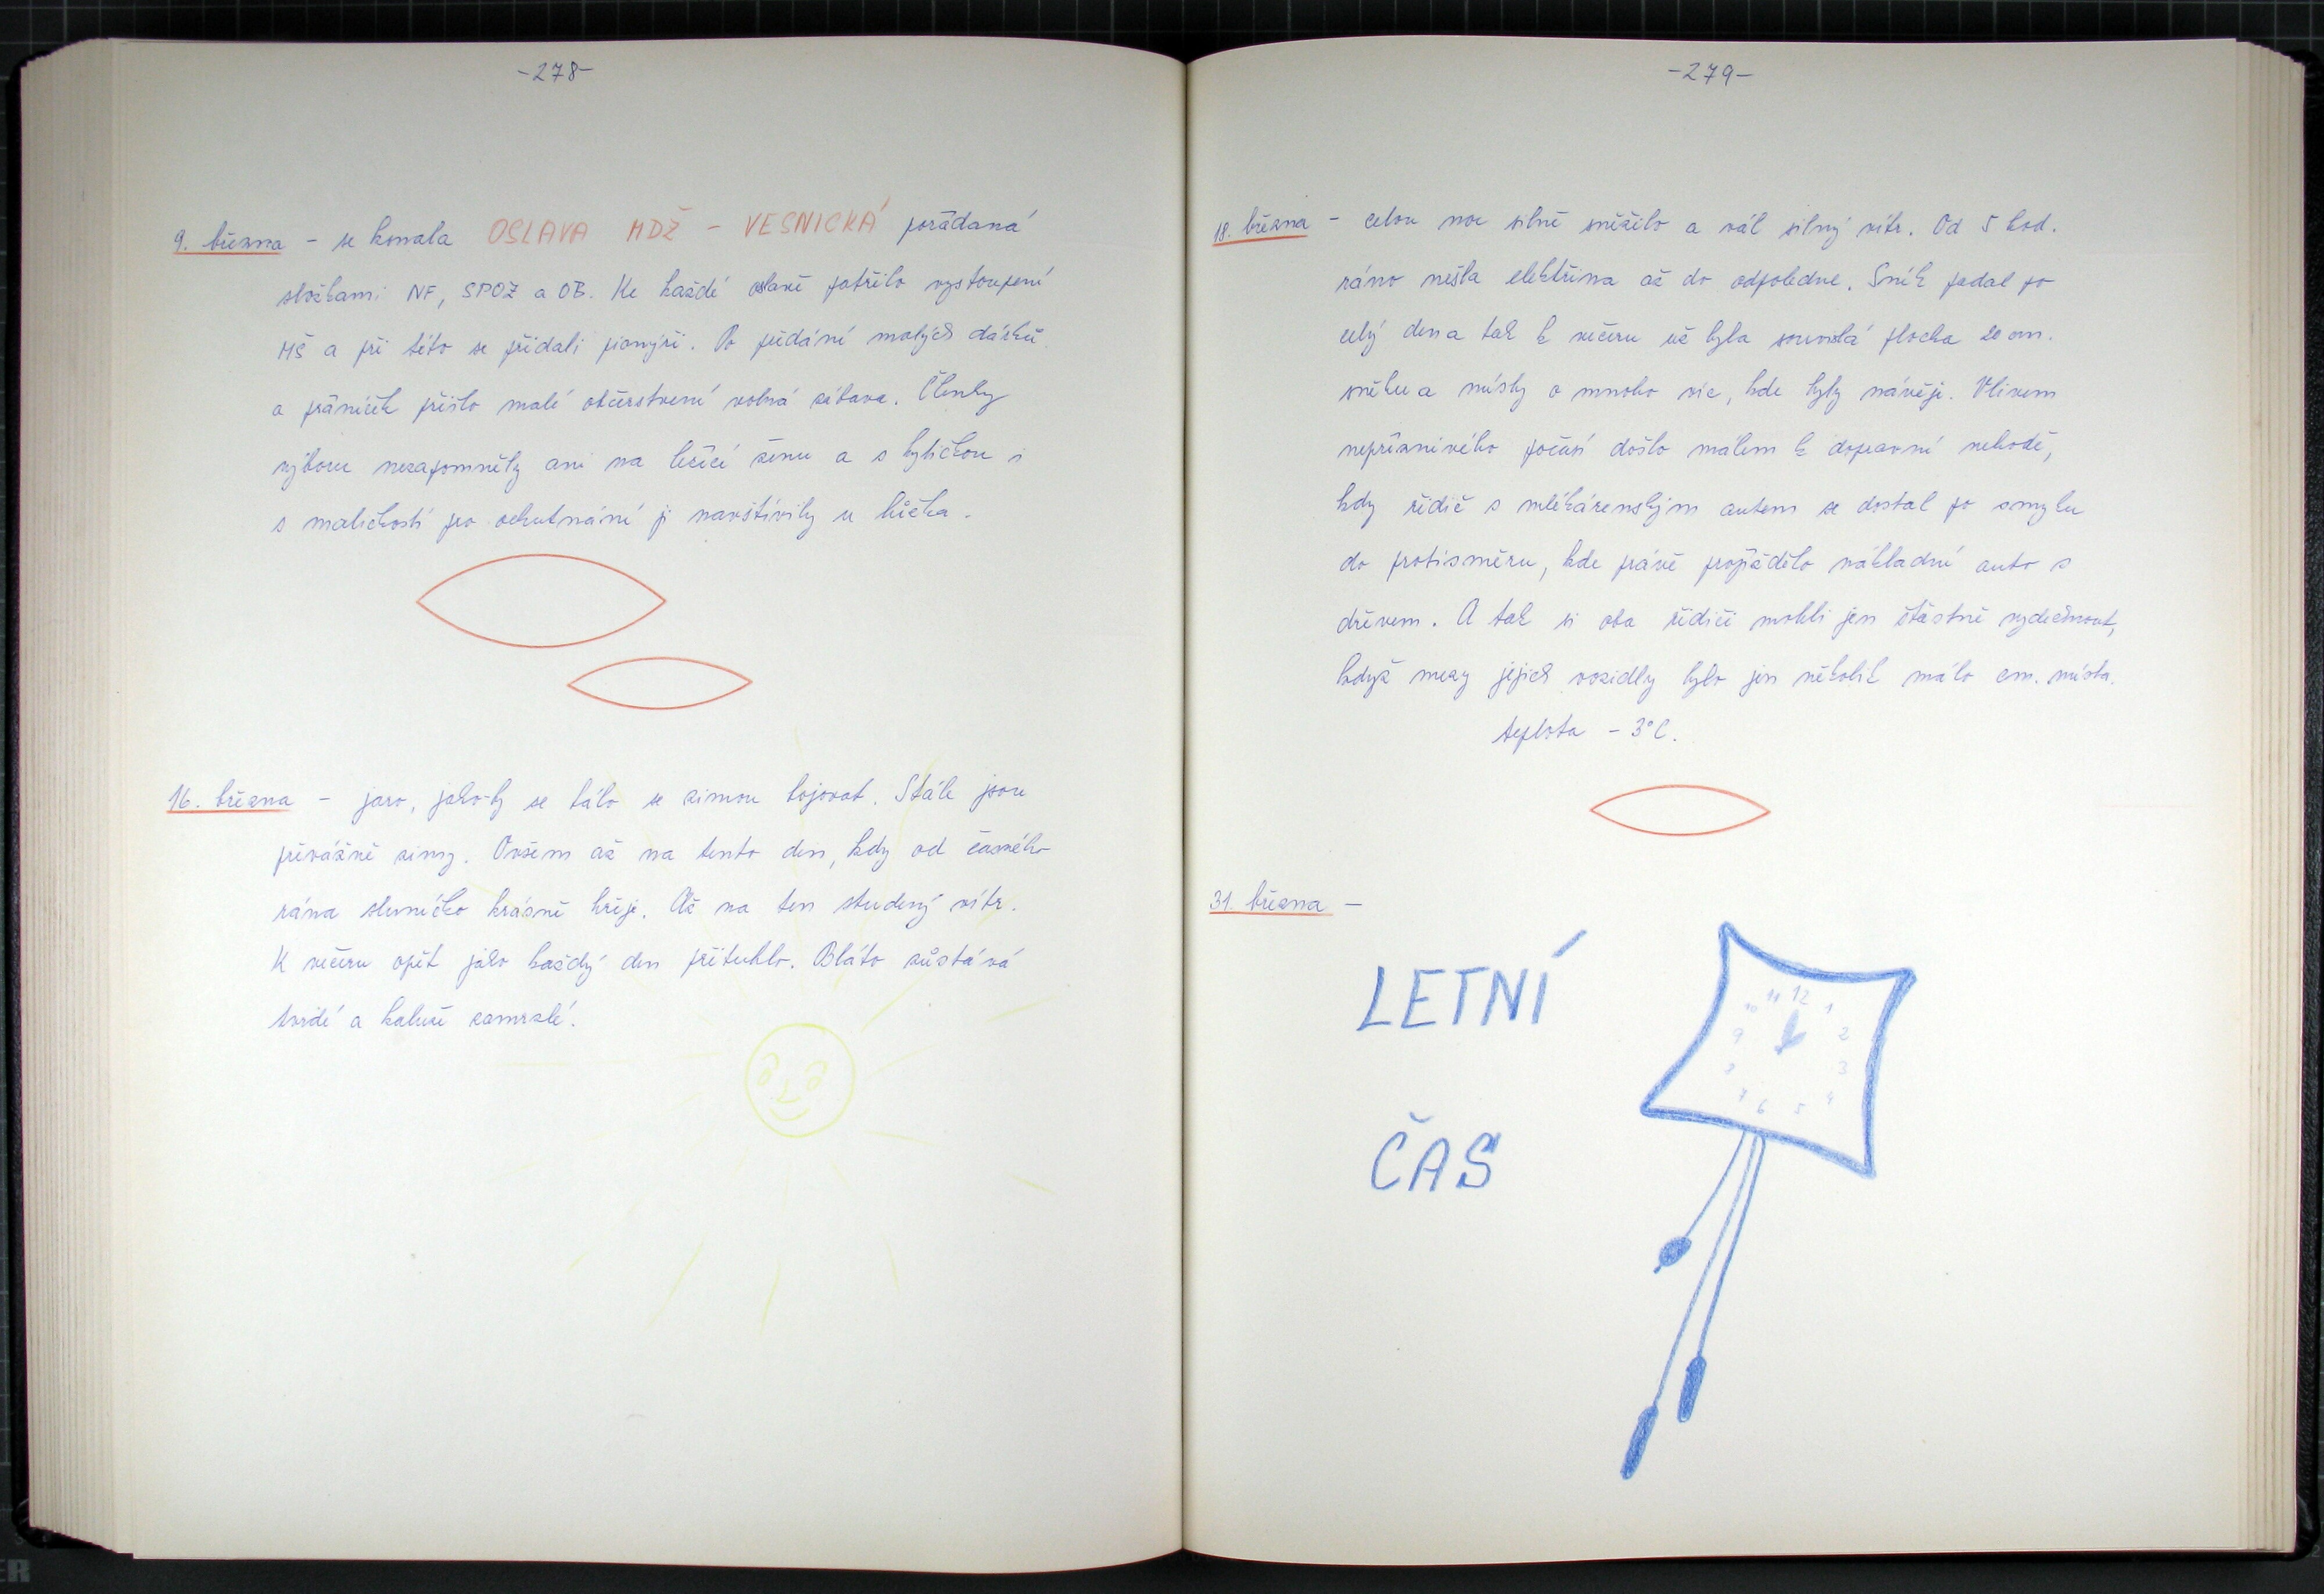 -278-
9. března - se konala OSLAVA MDŽ - VESNICKÁ pořádaná
složkami NF, SPOZ a OB. Ke každé oslavě patřilo vystoupení
MŠ a při této se přidali pionýři. Po předání malých dárků
a přáníček přišlo malé občerstvení volná zábava. Členky
výboru nezapomněly ani na ležící ženu a s kytičkou i
s maličkostí pro ochutnání ji navštívily u lůžka.
16. března - jaro, jako-by se bálo se zimou bojovat. Stále jsou
převážně zimy. Ovšem až na tento den, kdy od časného
rána sluníčko krásně hřeje. Až na ten studený vítr.
K večeru opět jako každý den přituhlo. Bláto zůstává
tvrdé a kaluže zamrzlé.
-279-
18. března - celou noc silně sněžilo a vál silný vítr. Od 5 hod.
ráno nešla elektřina až do odpoledne. Sníh padal po
celý den a tak k večeru už byla souvislá plocha 20 cm.
sněhu a místy o mnoho víc, kde byly návěje. Vlivem
nepříznivého počasí došlo málem k dopravní nehodě,
kdy řidič s mlékárenským autem se dostal po smyku
do protisměru, kde právě projíždělo nákladní auto s
dřevem. A tak si oba řidiči mohli jen šťastně vydechnout,
když mezy jejich vozidly bylo jen několik málo cm. místa.
teplota - 3°C.
31. března -
LETNÍ
ČAS
12
1
2
3
4
5
6
7
8
9
10
11